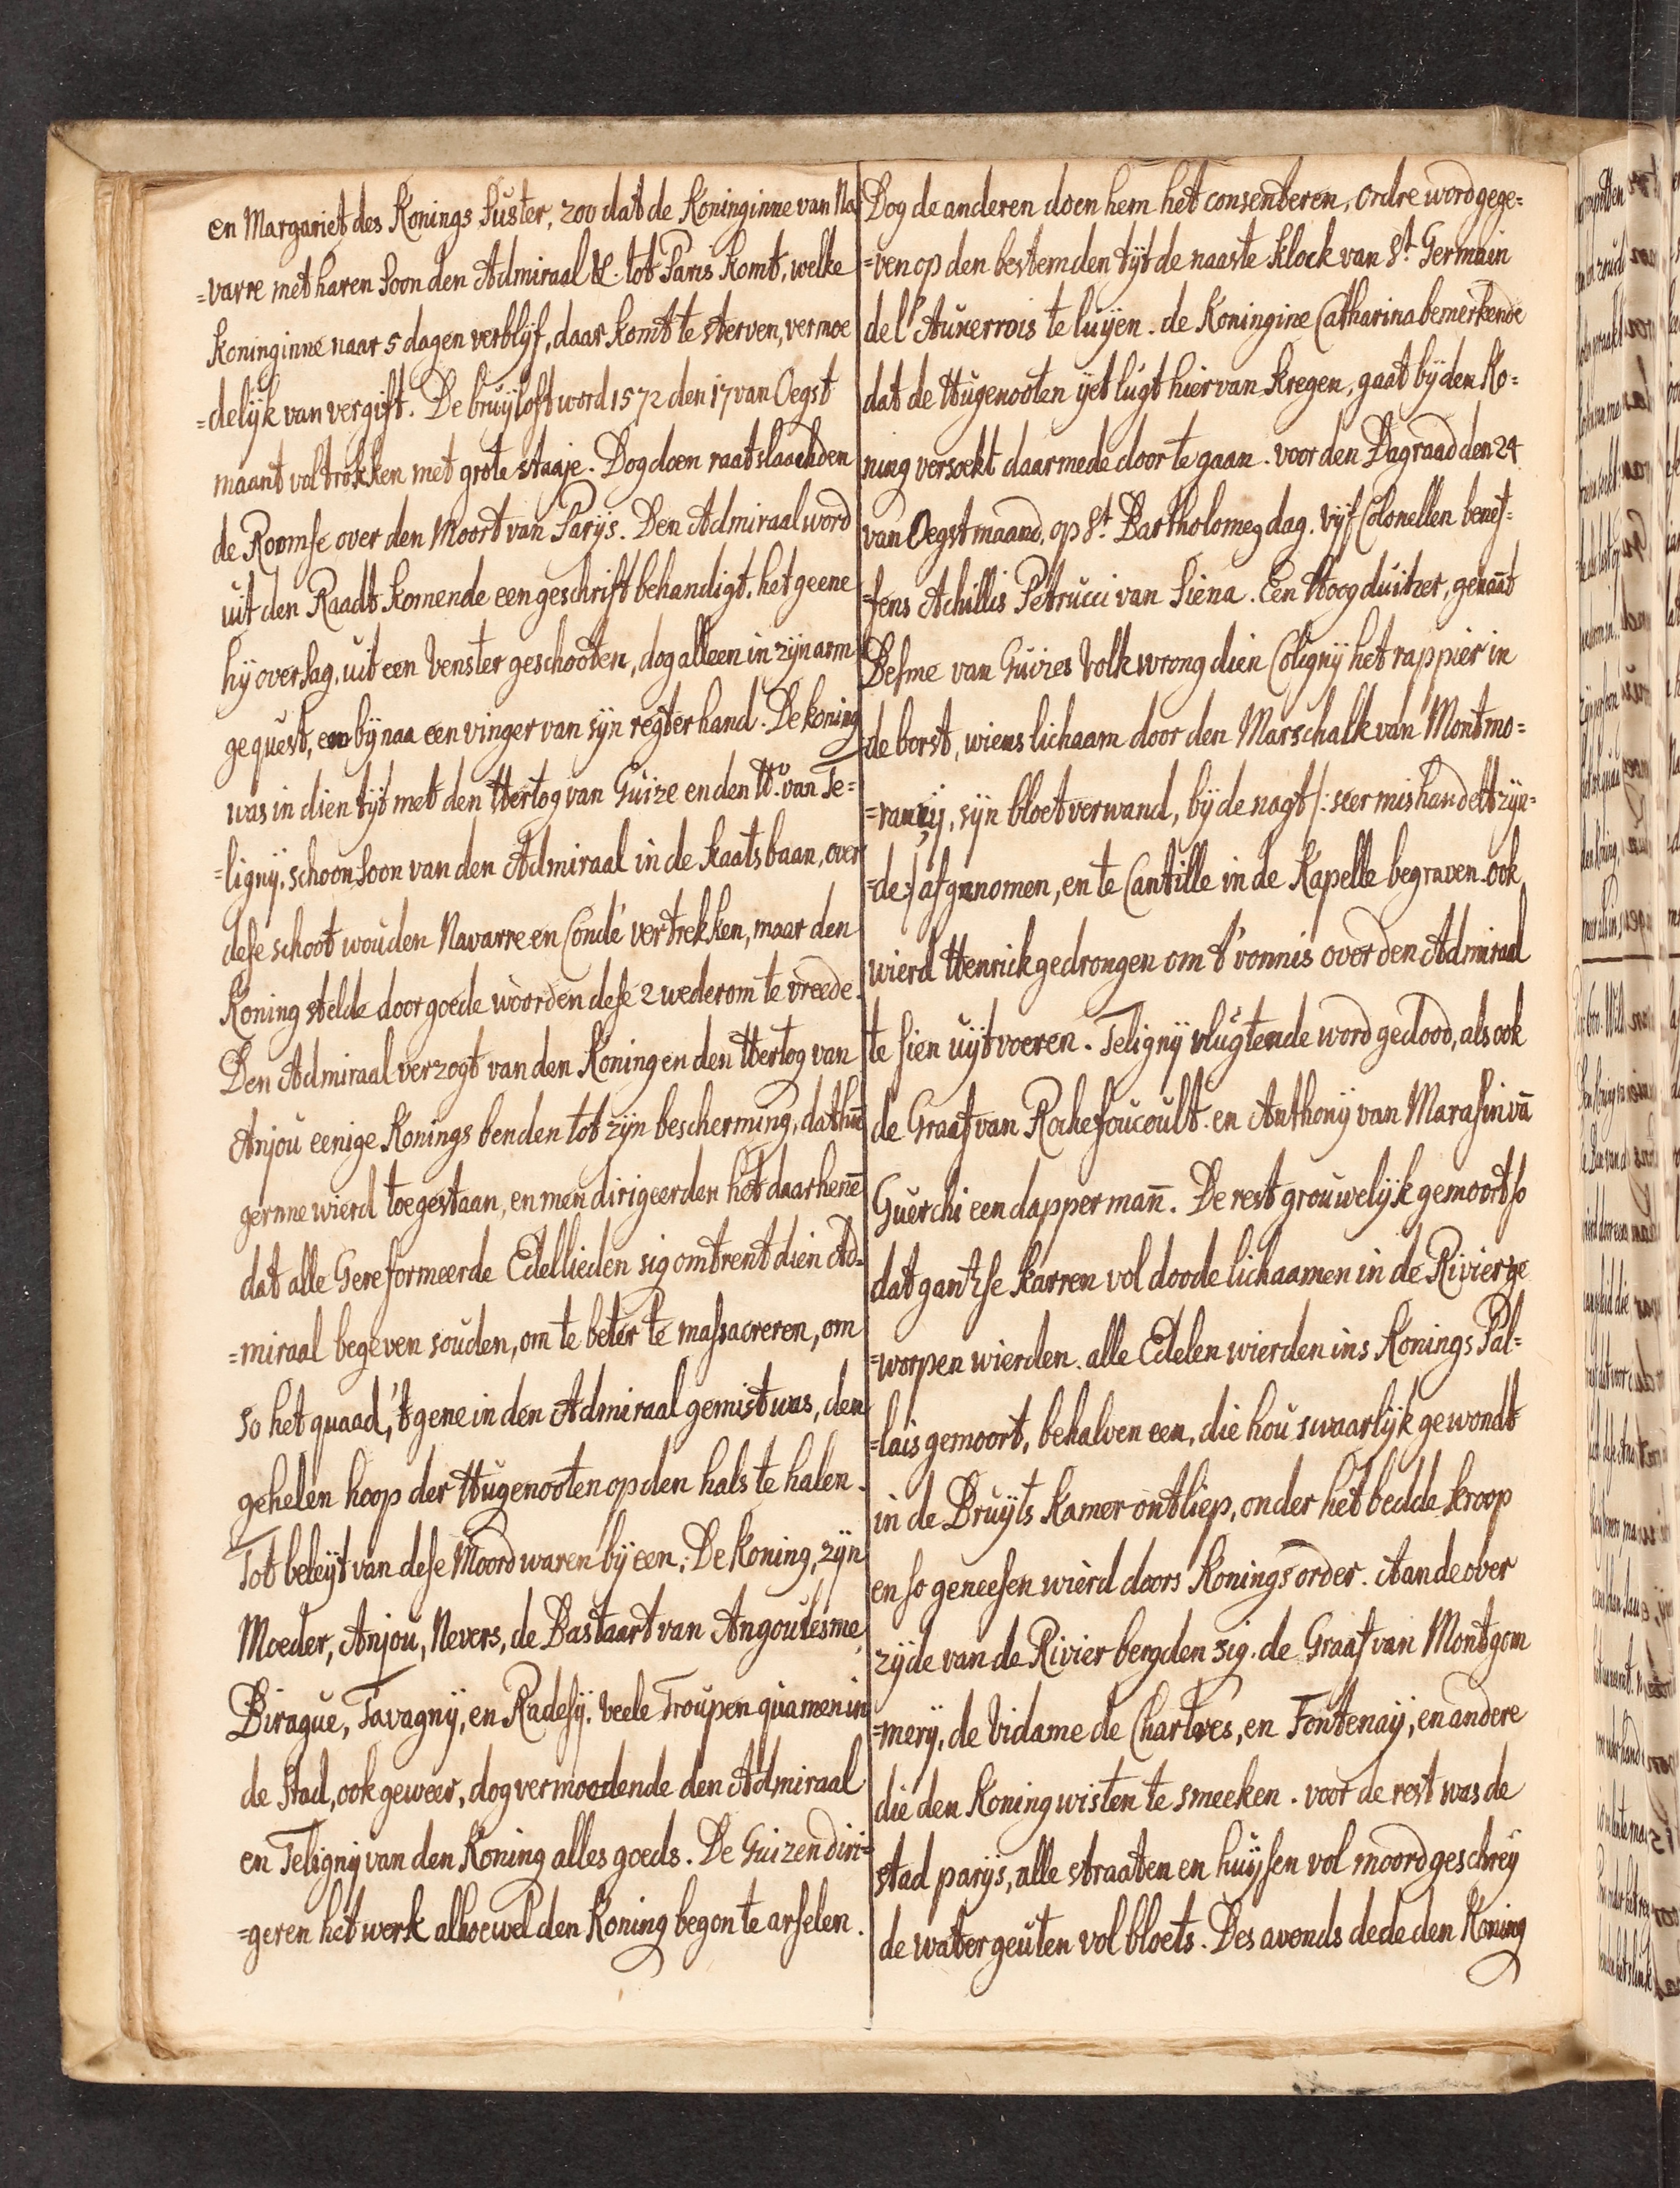 en Margariet des Konings Suster, zoo dat de Koninginne van Na
=varre met haren Soon den Admiraal &. tot Paris komt, welke
koninginne naar 5 dagen verblyf, daar komt te sterven, vermoe
=delijk van vergift. De bruijloft word 1572 den 17 van Oegst
maant voltrokken met grote staaje. Dog doen raatslaachden
de Roomse over den Moort van Parijs. Den Admiraal word
uit den Raadt komende een geschrift behandigt, het geene
hij oversag, uit een Venster geschooten, dog alleen in zijn arm
gequest, en bij naa een vinger van sijn regter hand. De koning
was in dien tijt met den Hertog van Guize en den Hr. van Te=
=lignij, schoonsoon van den Admiraal in de Kaatsbaan, over
dese schoot wouden Navarre en Condé vertrekken, maar den
Koning stelde door goede woorden dese 2 wederom te vreede.
Den Admiraal verzogt van den Koning en den Hertog van
Anjou eenige Konings benden tot zijn bescherming, dat hem
gernne wierd toegestaan, en men dirigeerden het daar henē
dat alle Gereformeerde Edellieden sig omtrent dien Ad=
=miraal begeven souden, om te beter te massacreren, om
so het quaad, 't gene in den Admiraal gemist was, den
gehelen hoop der Hugenooten op den hals te halen.
Tot beleijt van dese Moord waren bij een, De Koning, zijn
Moeder, Anjou, Nevers, de Bastaart van Angoulesme,
Birague, Tavagnij, en Radesij. veele Troupen quamen in
de Stad, ook geweer, dog vermoedende den Admiraal
en Telignij van den Koning alles goeds. De Guizen diri=
=geren het werk alhoewel den Koning begon te arselen.
Dog de anderen doen hem het consenteren, ordre word gege=
=ven op den bestemden tijt de naaste klock van St. Germain
de l'Auxerrois te luijen. de Koningine Catharina bemerkende
dat de Hugenooten ijet lugt hier van kregen, gaat bij den Ko=
ning versoekt daarmede door te gaan. voor den Dagraad den 24
van Oegstmaand, op St. Bartholomeg dag. Vijf Colonellen benef=
=fens Achillis Petrucci van Siena. Een Hoogduitzer, genaāt
Besme van Guizes Volk wrong dien Colignij het rappier in
de borst, wiens lichaam door den Marschalk van Montmo=
=rancij, sijn bloetverwand, bij de nagt /: seer mishandelt zijn=
=de:/ afgenomen, en te Cantille in de Kapelle begraven. ook
wierd Henrick gedrongen om 't vonnis over den Admiraal
te sien uijtvoeren. Telignij vlugtende word gedood, als ook
de Graaf van Rochefoucoult en Anthonij van Marasin vā
Guerchi een dapper mañ. De rest grouwelijk gemoort so
dat gantzse karren vol doode lichaamen in de Rivier ge
=worpen wierden. alle Edelen wierden ins Konings Pal=
=lais gemoort, behalven een, die hou swaarlijk gewondt
in de Bruijts Kamer ontliep, onder het bedde kroop
en so geneesen wierd doors Konings order. Aan de over
zijde van de Rivier bergden sig. de Graaf van Montgom
=merij, de Vidame de Chartres, en Fontenaij, en andere
die den Koning wisten te smeeken. voor de rest was de
stad parijs, alle straaten en huijsen vol moordgeschreij
de watergeuten vol bloets. Des avonds dede den Koning